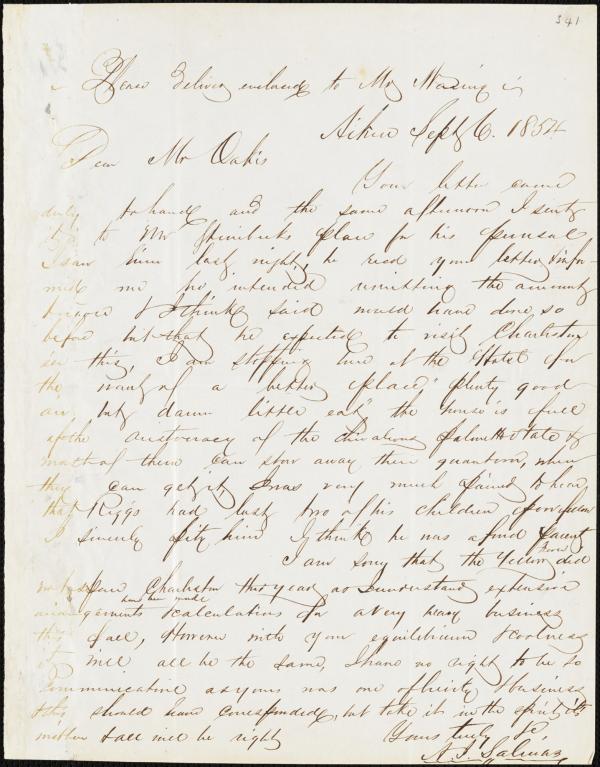 341
Please Deliver enclosed to Mr Waring
Aiken Sept 6. 1854
Dear Mr Oakes
Your letter came
duly to hand and the same afternoon I sent
it to Mr place for his perusal
I saw him last night, he read your letter & infor-
med me he intended remitting the amount
& I think said would have done so
before but that he expected to visit Charleston
in this, I am stopping here at the Hotel for
the want of a better place, "plenty good
air, but damn little eat" the house is full
of the aristocracy of the chivalrous Palmetto State &
most of them can stow away their quantum, when
they can get it, I was very much pained to hear,
that Riggs had lost two of his children
I sincerely pity him I think he was a fond parent
I am sorry that the Yellow Fever did
not spare Charleston this year as I understand extensive
arrangements have been made & calculations for a very heavy business
this Fall, However with your equilibrium & coolness
it will all be the same, I have no right to be so
communicative as yours was one of brevity & business
& this should have corresponded, but take it in the spirit its
written & all will be right Yours truly &c
A. J. Salinas